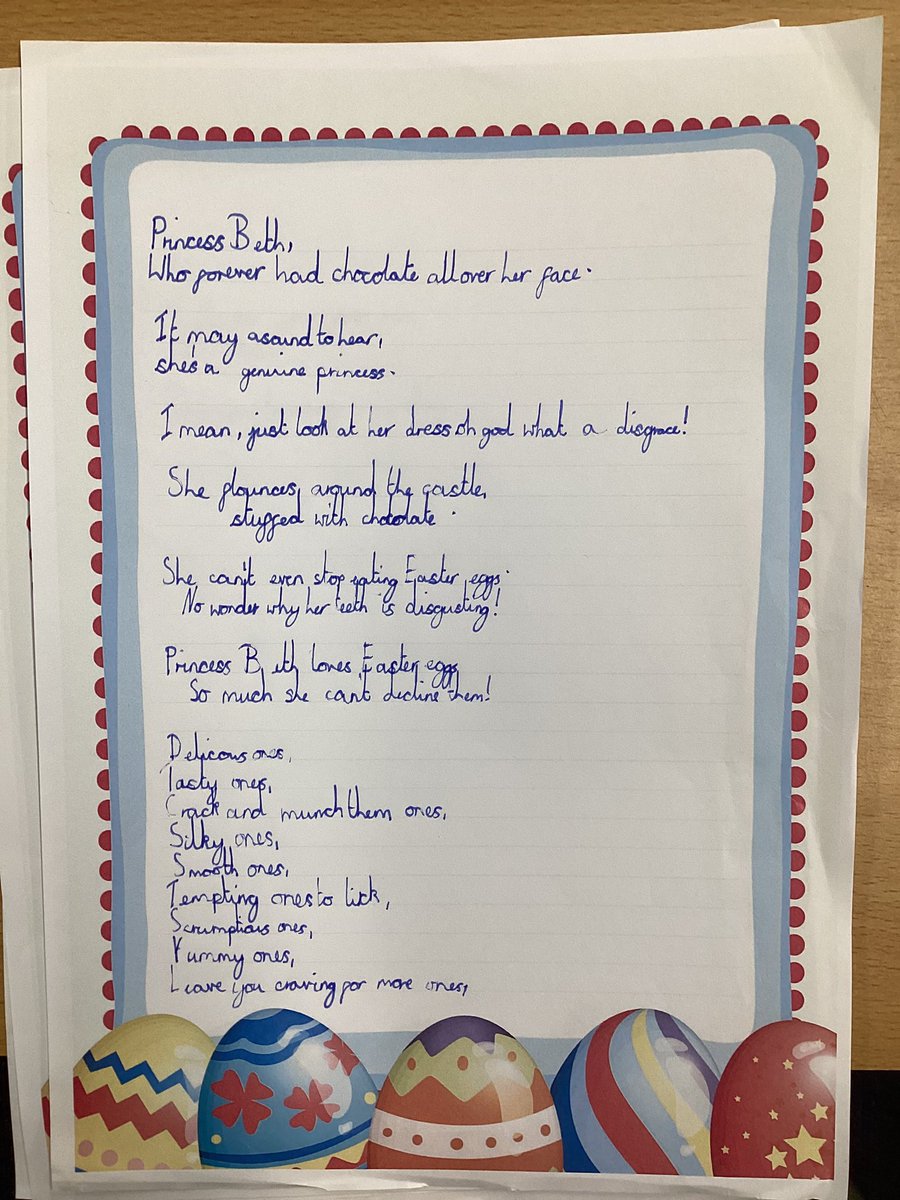 Princess Beth,
Who forever had chocolate all over her face.
It may asound to hear,
she's a genuine princess.
I mean, just look at her dress oh god what a disgrace!
She flounces around the castle,
stuffed with chocolate.
She can't even stop eating Easter eggs.
No wonder why her teeth is disgusting!
Princess Beth loves Easter eggs
So much she can't decline them!
Delicous ones,
Tasty ones,
Crack and munch them ones,
Silky ones,
Smooth ones,
Tempting ones to lick,
Scrumptious ones,
Yummy ones,
Leave you craving for more ones,